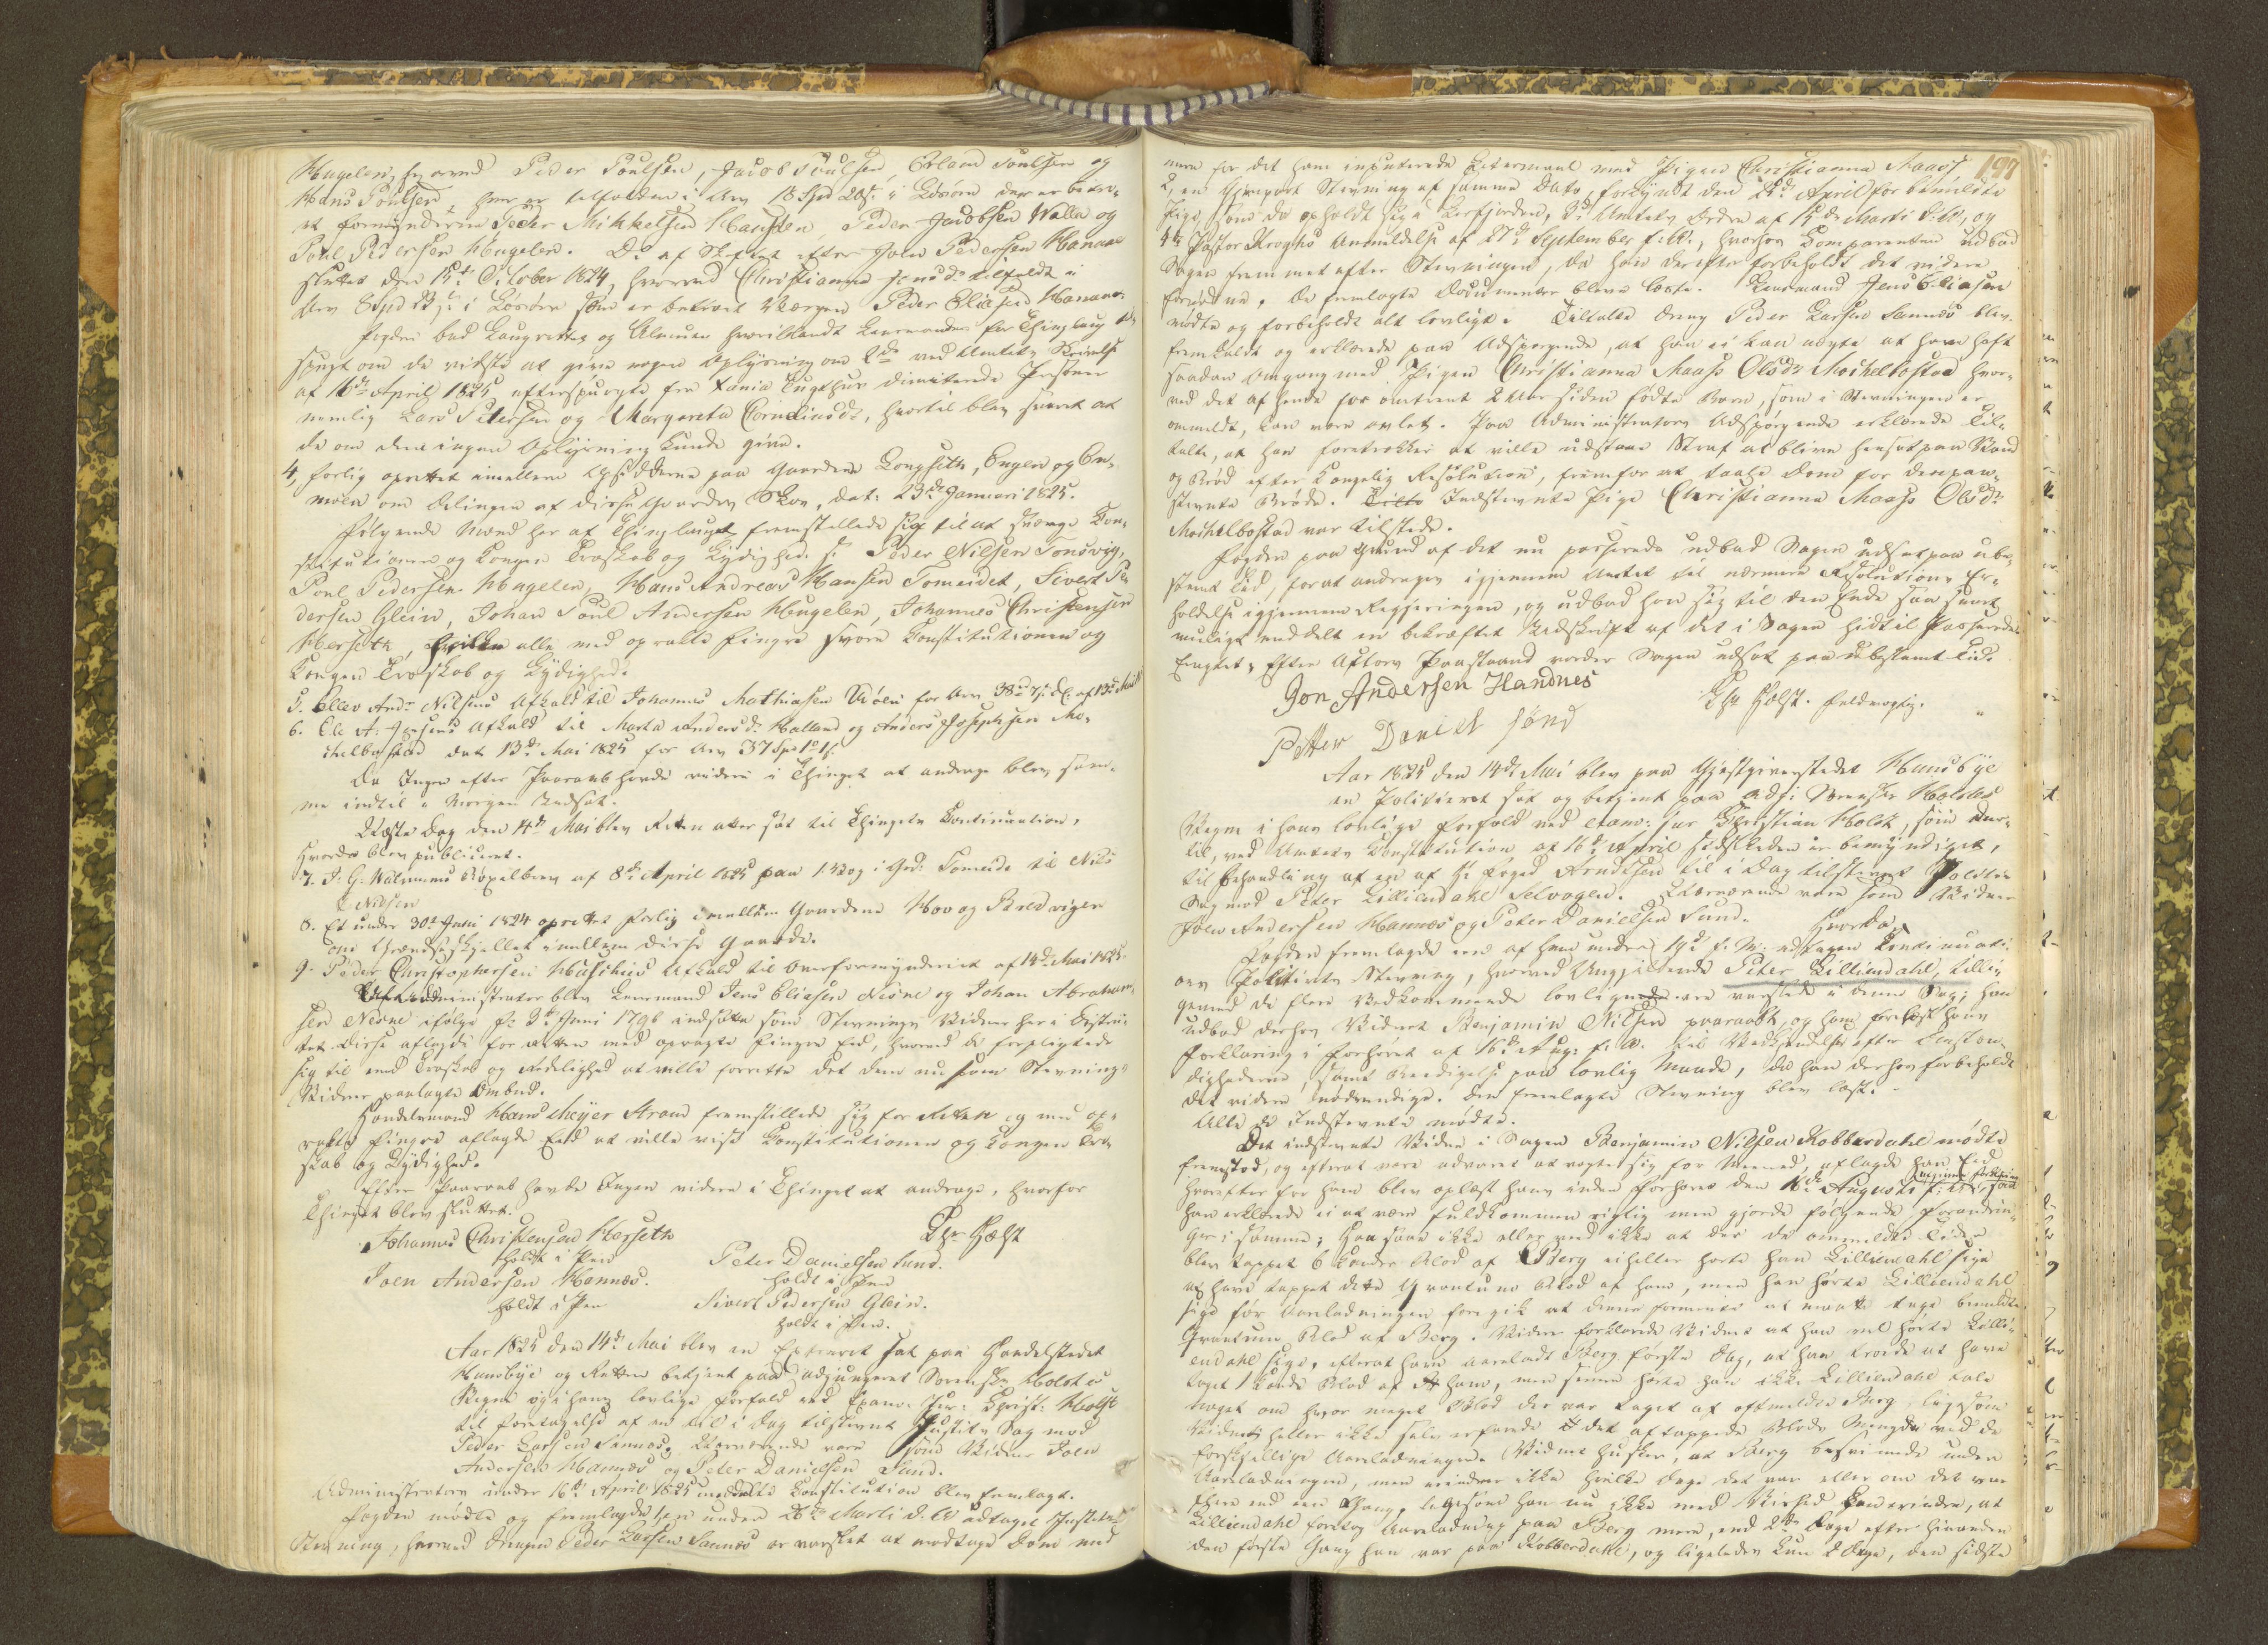 Hugelen, hvorved Peder Poulsen, Jacob Poulsen, Erland Poulsen og
Hans Poulsen, hver er tilfalden i Arv 18 Spd 20 s. i Løsøre der er betroe-
et Formynderne Peder Mikkelsen Hansken, Peder Jacobsen Walla og
Poul Pedersen Hugelen. D: af Skiftet efter John Pedersen Hanaa
sluttet den 15de October 1824, hvorved Christianna Jensdr. tilfaldt i
Arv i Løsøre som er betroet Værgen Peder Eliasen Hanaa.
Fogden bad Laugrettet og Almuen hvoriblandt Lensmanden for Thinglaug
søgt om de vidste at give nogen Oplysning om 2de ved Amtets Skrivelse
af 16de April 1825 efterspurgte fra Xania Tugthus dimiterede Personer
nemlig Lars Petersen og Margareta Corneliusdr., hvortil blev svaret at
de om dem ingen Oplysning kunde give.
4, Forlig oprettet imellem Opsidderne paa Gaardene Longseth, Engen og En-
moen om Delingen af disse Gaarders Skov, dat: 23de Januari 1825.
Følgende Mænd her af Thinglauget fremstillede sig til at sværge Con-
stitutionen og Kongen Troskab og Lydighed: Peder Nilsen Tonsvig,
Poul Pedersen Hugelen, Hans Andreas Hansen Tomeidet, Sivert Pe-
dersen Glein, Johan Poul Andersen Hugelen, Johannes Christensen
Herseth, hvilke alle med oprakte Fingre svore Constitutionen og
Kongen Troskab og Lydighed.
5. Ellev Andr: Nilsens Afkald til Johannes Mathiasen for Arv af 13de Mai
6. Ole A: Afkald til Marta Andersdr. Halland og Anders Josephsen Mo-
chelbostad dat 13de Mai 1825 for Arv 37 Spd
Da Ingen efter Paaraab havde videre i Thinget at andrage blev sam-
me indtil i Morgen udsat.
Næste Dag den 14de Mai blev Retten atter sat til Thingets Continuation,
hvorda blev publiceret.
7. J: G: Bøxelbrev af 8de April 1825 paa 1 Vog i Grd: Tomeide til Nils
Nilsen
8. Et under 30te Juni 1824 oprettet Forlig imellem Gaardene Hov og Bredvigen
om Grændseskjellet imellem disse Gaarde.
9. Peder Christophersen Afkald til Overformynderiet af 14de Mai 1825.
Af Administrator blev Lensmand Jens Eliasen Nesne og Johan Abraham-
sen Nesne ifølge F: 3de Juni 1796 indsatte som Stevnings Vidner her i Distric-
tet. Disse aflagde for Retten med oprakte Fingre Eed, hvorved de forpligtede
sig til med Troskab og Redelighed at ville forrette det dem nu som Stevnings-
Vidner paalagte Ombud.
Handelsmand Hans Meyer Strand fremstillede sig for Retten og med op-
rakte Fingre aflagde Eed at ville vise Constitutionen og Kongen Tro-
skab og Lydighed.
Efter Paaraab havde Ingen videre i Thinget at andrage, hvorfor
Thinget blev sluttet.
Chr Holst
Johannes Christensen Herseth
holdt i Pen
Peter Danielsen Sund.
holdt i Pen
Joen Andersen Hannæs.
holdt i Pen
Sivert Pedersen Glein.
holdt i Pen.
Aar 1825 den 14de Mai blev en Extraret sat paa Handelstedet
Hunsbye og Retten betjent paa adjungeret Sorenskr. Holsts
Vegne og i hans lovlige Forfald ved Exam: Jur: Christ: Holst
til Foretagelse af en til i Dag tilstevnt Justits Sag mod
Peder Larsen Sannæs. Nærværende vare som Vidner Joen
Andersen Hannæs og Peter Danielsen Sund.
Administrators under 16de April 1825 meddelte Constitution blev fremlagt.
Fogden mødte og fremlagde sin under 26de Marti d. A. udtagne Justits-
Stevning, hvorved Drengen Peder Larsen Sannæs er varslet at modtage Dom med
197
mere for det ham imputerede Leiermaal med Pigen Christianna Maass,
2, en Gjenpart Stevning af samme Dato, forkyndt den April for bemeldte
Pige, som da opholdt sig i Leerfjorden, 3de Amtets Ordre af 15de Marti d: A:, og
4de Pastor Kroghs Anmeldelse af 27de September f: A:, hvorhos Comparenten udbad
Sagen fremmet efter Stevningen, da han derefter forbeholdt det videre
fornødne. De fremlagte Documenter bleve læste. Lensmand Jens Eliasen
mødte og forbeholdt alt lovligt. Tiltalte Dreng Peder Larsen Sannæs blev
fremkaldt og erklærede paa Adspørgende, at han ei kan negte at have haft
saadan Omgang med Pigen Christianna Maass Olsdr. Mochelbostad hvor-
ved det af hende for omtrent 2 Aar siden fødte Barn, som i Stevningen er
ommeldt, kan være avlet. Paa Administrators Adspørgende erklærede Til-
talte, at han foretrækker at ville udstaae Straf at blive hensat paa Vand
og Brød efter Kongelig Resolution, fremfor at taale Dom for den paa-
stevnte Brøde. Indstevnte Pige Christianna Maass Olsdr.
Mochelbostad var tilstede.
Fogden paa Grund af det nu passerede udbad Sagen udsat paa ube-
stemt Tid, for at andrages igjennem Amtet til nærmere Resolutions Er-
holdelse igjennem Regjeringen, og udbad han sig til den Ende saa snart
muligt meddelt en bekræftet Udskrift af det i Sagen hidtil Passerede.
Eragtet, Efter Actors Paastand vorder Sagen udsat paa ubestemt Tid.
Jon Andersen Handnes
Chr Holst. fuldmægtig.
Petter Daniel sønd
Aar 1825 den 14de Mai blev paa Gjæstgiverstedet Hunsbye
en Politieret sat og betjent paa Adj: Sorenskr Holsts
Vegne i hans lovlige Forfald ved Exam: Jur Christian Holst, som der-
til, ved Amtets Constitution af 16de April sidstleden er bemyndiget,
til Behandling af en af Hr Foged Arndtsen til i Dag tilstevnt Politie
Sag mod Peter Lilliendahl Selvogen. Nærværende vare som Vidner
Joen Andersen Hannæs og Peter Danielsen Sund. Hvorda,
Fogden fremlagde en af ham under 19de f: M: udtagen Continuati-
ons Politiets Stevning, hvorved Peter Lilliendahl, tilli-
gemed de flere Vedkommende lovligen ere varslede i denne Sag; han
udbad derhos Vidnet Benjamin Nilsen paaraabt, og ham forelæst hans
Forklaring i Forhøret af 16de Aug: f: A: til Vedkjendelse efter Omstæn-
dighederne, samt Beedigelse paa lovlig Maade, da han derhos forbeholdt
det videre nødvendige. Den fremlagte Stevning blev læst.
Alle de Indstevnte mødte.
Det indstevnte Vidne i Sagen Benjamin Nilsen Kobberdahl mødte
fremstod, og efterat være advaret at vogte sig for Meened, aflagde han Eed
hvorefter for ham blev oplæst hans inden Forhøret den 16de Augusti f: A: som
han erklærede ei at være fuldkommen rigtig men gjorde følgende Forandrin-
ger i samme; Han saae ikke eller ved ikke at der da ommeldte Tider
blev tappet 6 Blod af Berg eiheller hørte han Lilliendahl sige
at have tappet dette Qvantum Blod af ham, men han hørte Lilliendahl
sige før Aareladningen foregik at denne formente at maatte tage bemeldte
Qvantum Blod af Berg. Videre forklarede Vidnet at han vel hørte Lilli-
endahl sige, efterat have aareladt Berg første Dag, at han troede at have
taget 1 Blod af ham, men siden hørte han ikke Lilliendahl tale
noget om hvor meget Blod der var taget af oftmeldte Berg, ligesom
Vidnet heller ikke selv erfarede det aftappede Blods Mængde ved de
forskjellige Aareladninger. Vidnet husker, at Berg besvimede under
Aareladningen, men erindrer ikke hvilke Dage det var eller om det var
flere end een Gang, ligesom han nu ikke med Vished kan erindre, at
Lilliendahl foretog Aareladning paa Berg mere, end 2de Dage efter hinanden
den første Gang han var paa Kobberdahl, og ligeledes kun 2 Dage, den sidste